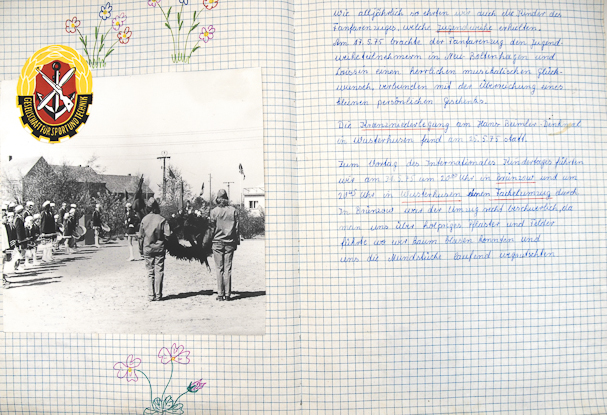 GESELLSCHAFT FÜR SPORT UND TECHNIK
Wie alljährlich so ehrten wir auch die Kinder des
Fanfarenzuges, welche Jugendweihe erhielten.
Am 17.5.75 brachte der Fanfarenzug den Jugend-
weiheteilnehmern in Neu Boltenhagen und
Lassan einen herrlichen musikalischen Glück-
wunsch, verbunden mit der Überreichung eines
kleinen persönlichen Geschenks.
Die Kranzniederlegung am Hans Beimler-Denkmal
in Wusterhusen fand am 25.5.75 statt.
Zum Vortag des Internationalen Kindertages führten
wir am 31.5.75 um Uhr in und um
Uhr in Wusterhusen einen Fackelumzug durch
In war der Umzug recht beschwerlich, da
man uns über holpriges Pflaster und Felder
führte wo wir kaum blasen konnten und
uns die Mundstücke laufend wegrutschten